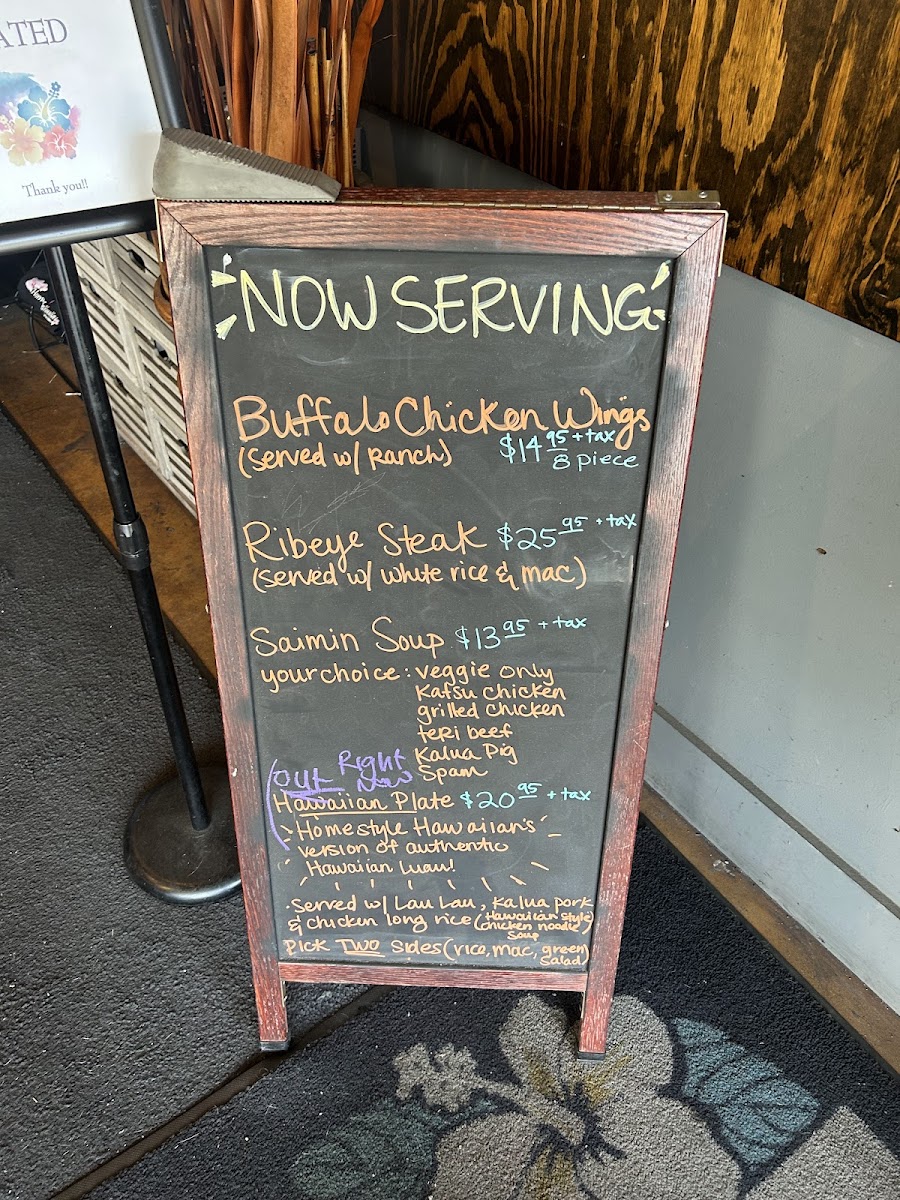 ATED
Thank you!!
NOW SERVING
Buffalo Chicken Wings
(served w/ Ranch) $14 95 + tax
8 piece
Ribeye Steak $25 95 + tax
(served w/ white rice & mac)
Saimin Soup $13 95 + tax
your choice: veggie only
Katsu chicken
grilled chicken
teri beef
Kalua Pig
Spam
Out Right Now
Hawaiian Plate $20 95 + tax
Homestyle Hawaiian's
version of authentic
Hawaiian Luau!
Served w/ Lau Lau, Kalua pork
& chicken long rice (Hawaiian style chicken noodle soup)
Pick TWO sides (rice, mac, green salad)